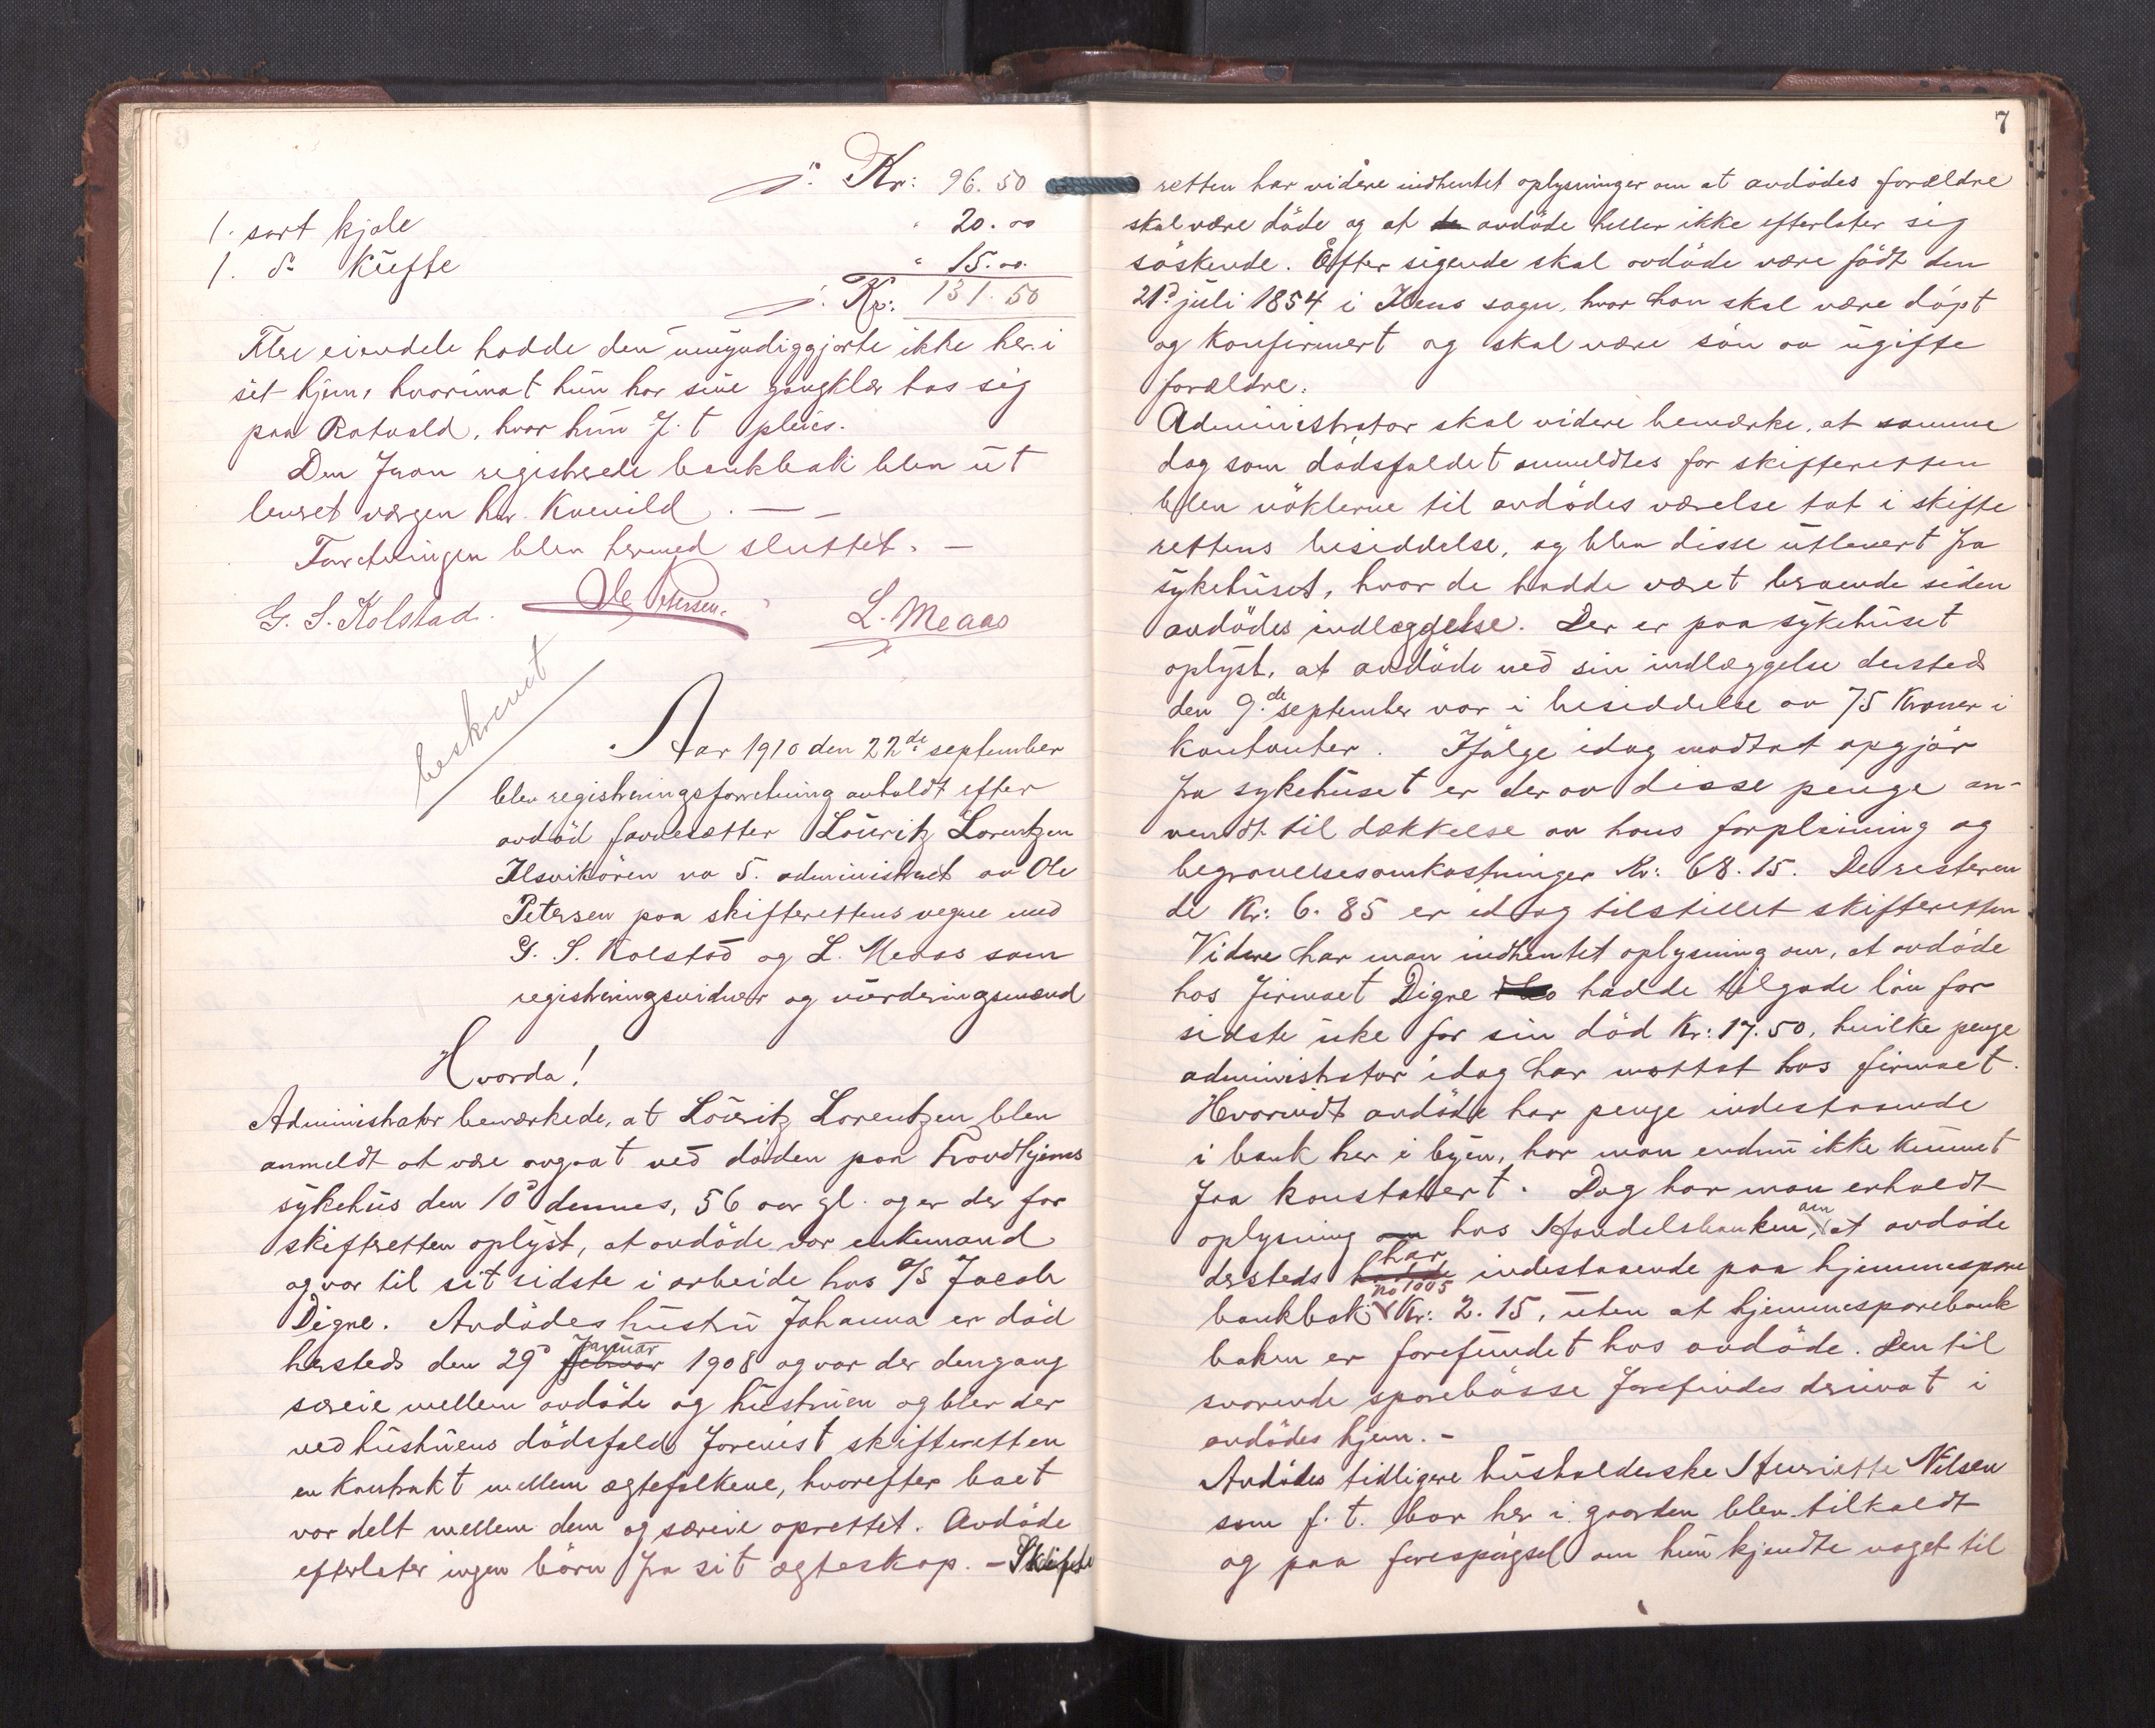 j. Kr: 96.50
1. sort kjole " 20.00
1. do kufte " 15.00
j. Kr: 131.50
Flere eiendele hadde den umyndiggjorte ikke her i
sit hjem, hvorimot hun har sine gangklær hos sig
paa Rotvold, hvor hun f. t pleies.
Den foran registrerede bankbok blev ut
leveret vergen hr. Kvenild. —
Forretningen blev hermed sluttet. —
G. S. Kolstad. Ole Petersen. L. Meaas
beskrevet
Aar 1910 den 22de september
blev registreringsforretning avholdt efter
avdød farvesætter Louritz Lorentzen
Ilsvikören no 5. administreret av Ole
Petersen paa skifterettens vegne med
G. S. Kolstad og L. Meaas som
registreringsvidner og vurderingsmænd
Hvorda!
Administrator bemærkede, at Louritz Lorentzen blev
anmeldt at være avgaat ved döden paa Trondhjems
sykehus den 10d dennes, 56 aar gl. og er der for
skifteretten oplyst, at avdöde var enkemand
og var til sit sidste i arbeide hos A/S Jacob
Digre. Avdödes hustru Johanna er död
hersteds den 29d februar januar 1908 og var der dengang
særeie mellem avdöde og hustruen og blev der
ved hustruens dödsfald forevist skifteretten
en kontrakt mellem ægtefolkene, hvorefter boet
var delt mellem dem og særeie oprettet. Avdöde
efterlater ingen börn fra sit ægteskap. — Skifte
7
retten har videre indhentet oplysninger om at avdödes forældre
skal være döde og at de avdöde heller ikke efterlater sig
söskende. Efter sigende skal avdöde være födt den
21d juli 1854 i Ilens sogn, hvor han skal være döpt
og konfirmert og skal være sön av ugifte
forældre.
Administrator skal videre bemærke, at samme
dag som dödsfaldet anmeldtes for skifteretten
blev nöklerne til avdödes værelse tat i skifte
rettens besiddelse, og blev disse utlevert fra
sykehuset, hvor de hadde været beroende siden
avdödes indlæggelse. Der er paa sykehuset
oplyst, at avdöde ved sin indlæggelse dersteds
den 9.de september var i besiddelse av 75 Kroner i
kontanter. Ifölge idag modtat opgjör
fra sykehuset er der av disse penge an-
vendt til dækkelse av hans forpleining og
begravelsesomkostninger Kr: 68.15. De resteren
de Kr: 6.85 er idag tilstillet skifteretten
Videre har man indhentet oplysning om, at avdöde
hos firmaet Digre hadde tilgode lön for
sidste uke för sin död Kr: 17.50, hvilke penge
administrator idag har mottat hos firmaet.
Hvorvidt avdöde har penge indestaaende
i bank her i byen, har man endnu ikke kunnet
faa konstatert. Dog har man erholdt
oplysning om hos Handelsbanken, om at avdöde
dersteds hadde har indestaaende paa hjemmespare
bankbok no 1005 Kr: 2.15, uten at hjemmesparebank
boken er forefundet hos avdöde. Den til
svarende sparebösse forefindes derimot i
avdödes hjem. —
Avdödes tidligere husholderske Henriette Nilsen
som f. t. bor her i gaarden blev tilkaldt
og paa forespörgsel om hun kjendte noget til